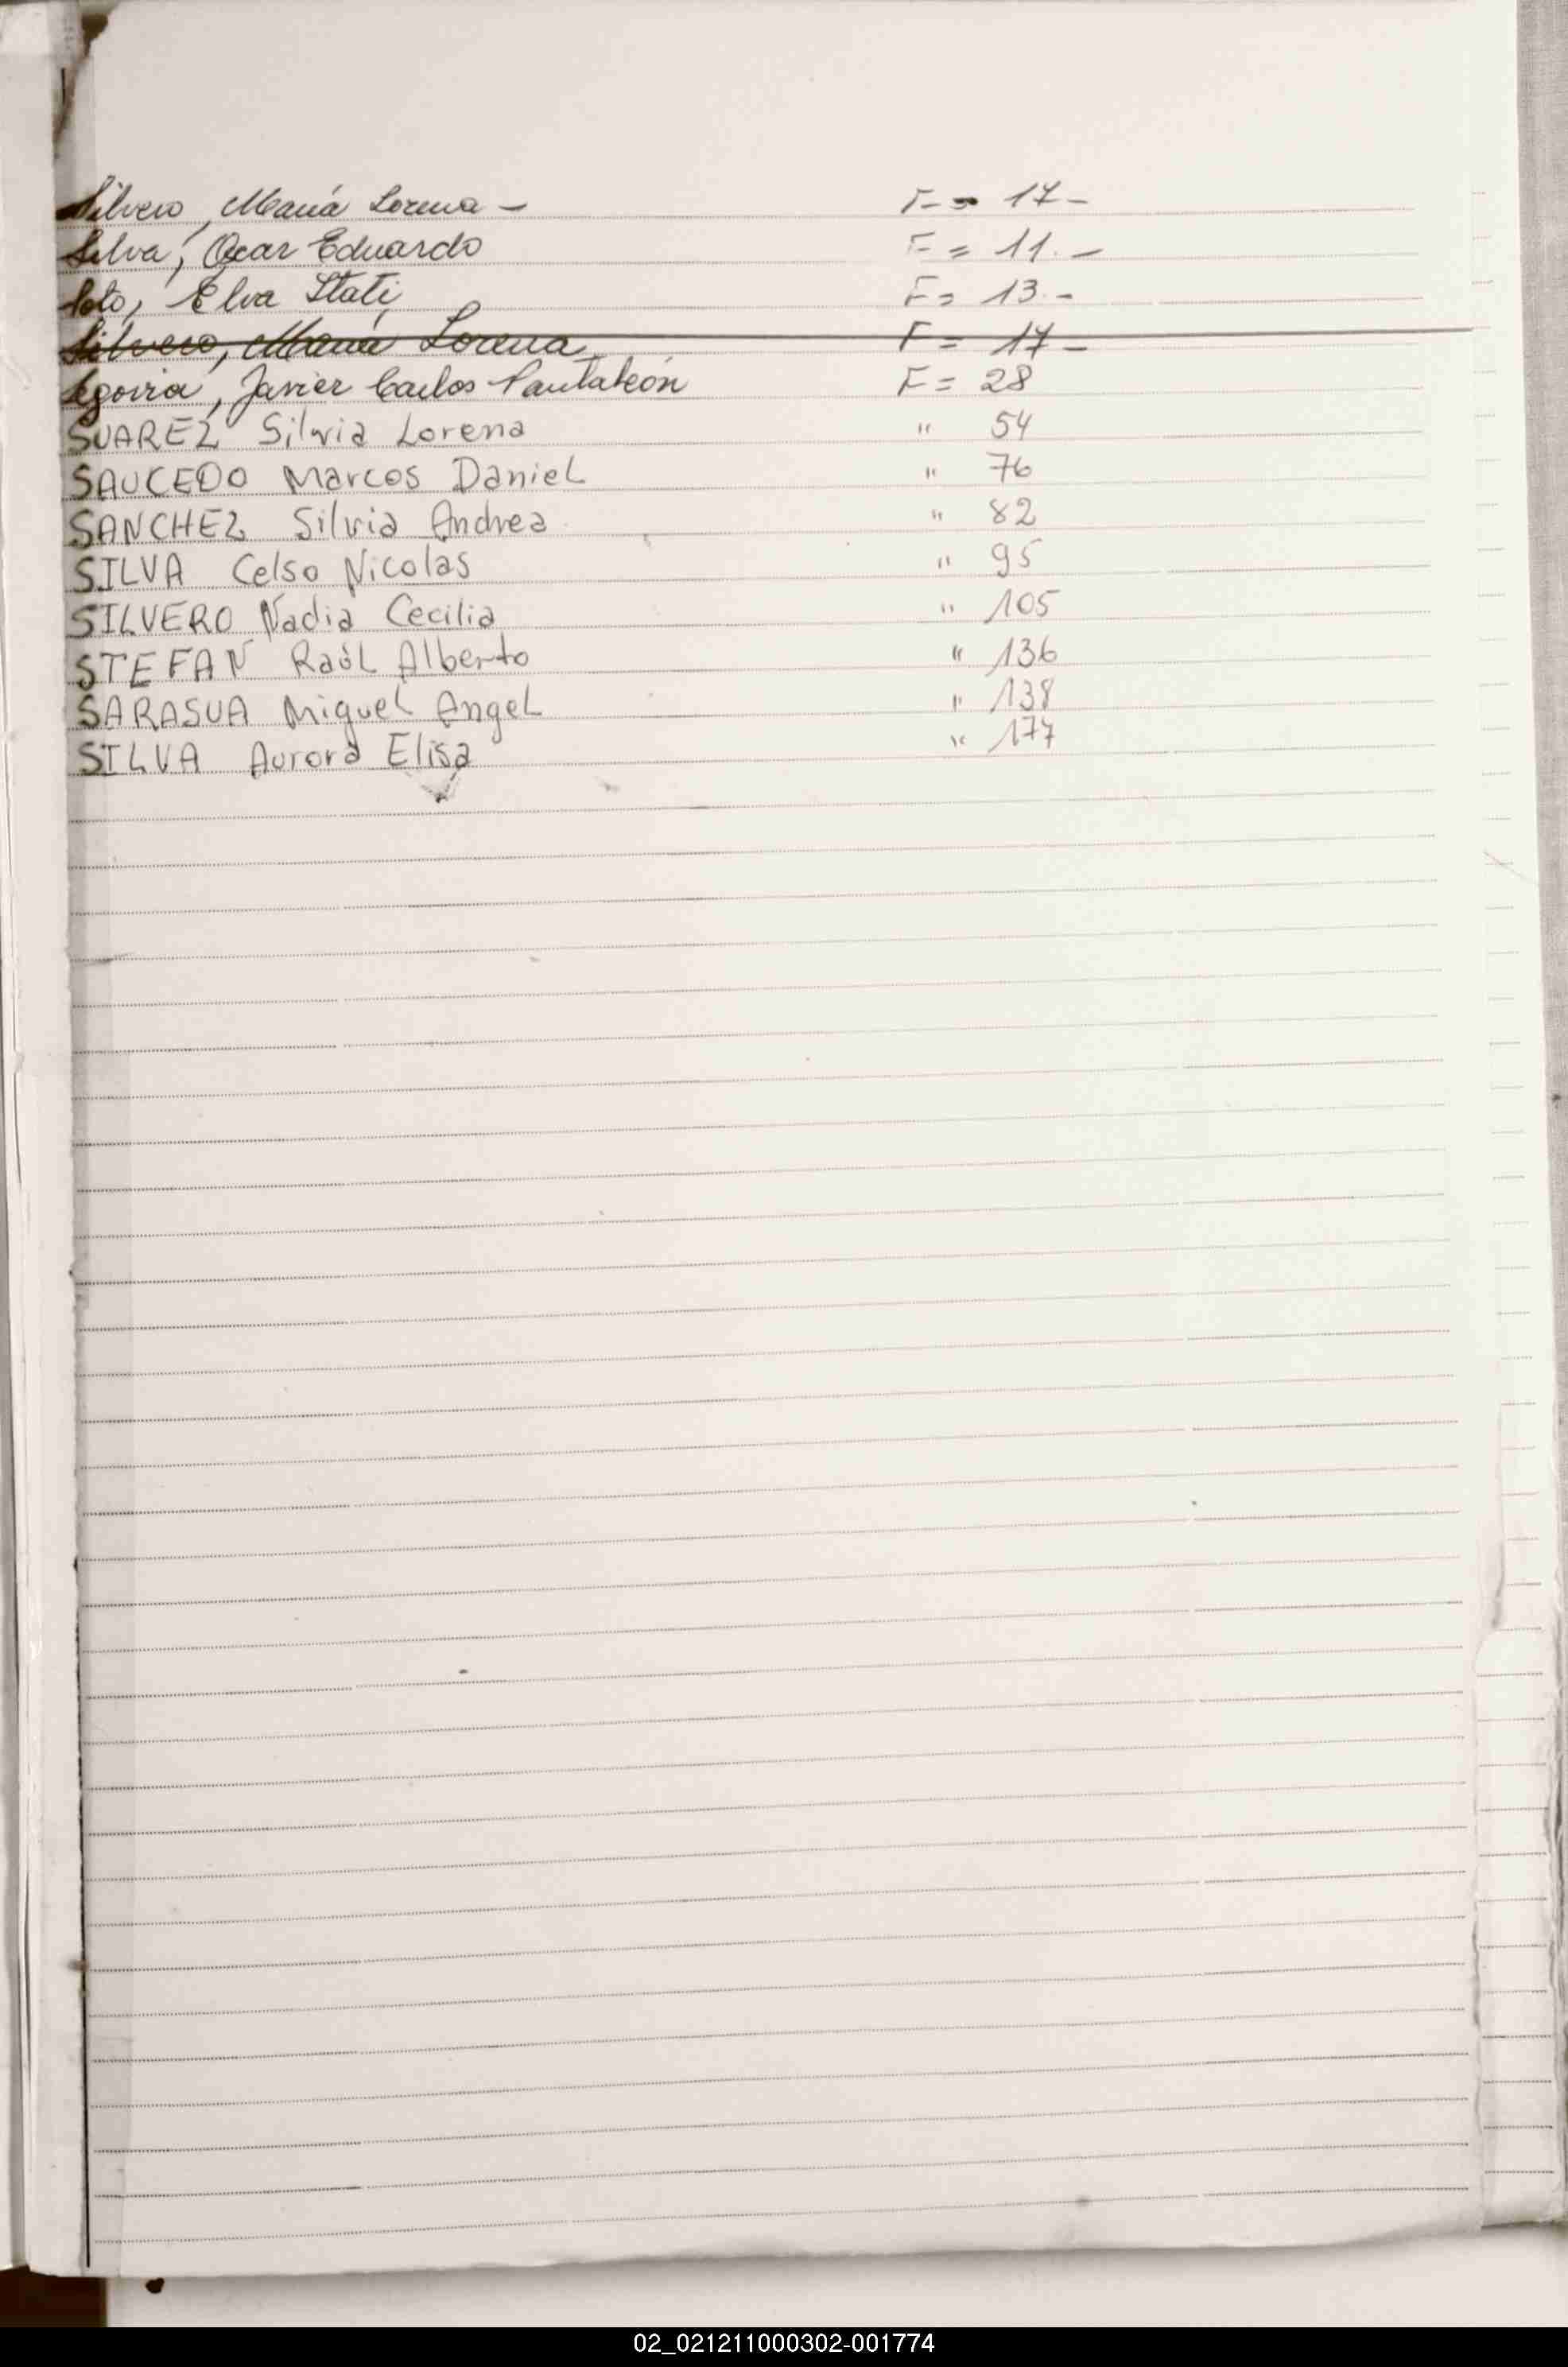 Silvero, María Lorena - F = 17 -
Silva, Oscar Eduardo F = 11. -
Soto, Elva Stati F = 13. -
Silvero, María Lorena F = 17 -
Segovia, Javier Carlos Pantaleón F = 28
SUAREZ Silvia Lorena " 54
SAUCEDO Marcos Daniel " 76
SANCHEZ Silvia Andrea " 82
SILVA Celso Nicolas " 95
SILVERO Nadia Cecilia " 105
STEFAN Raúl Alberto " 136
SARASUA Miguel Angel " 138
SILVA Aurora Elisa " 177
02_021211000302-001774